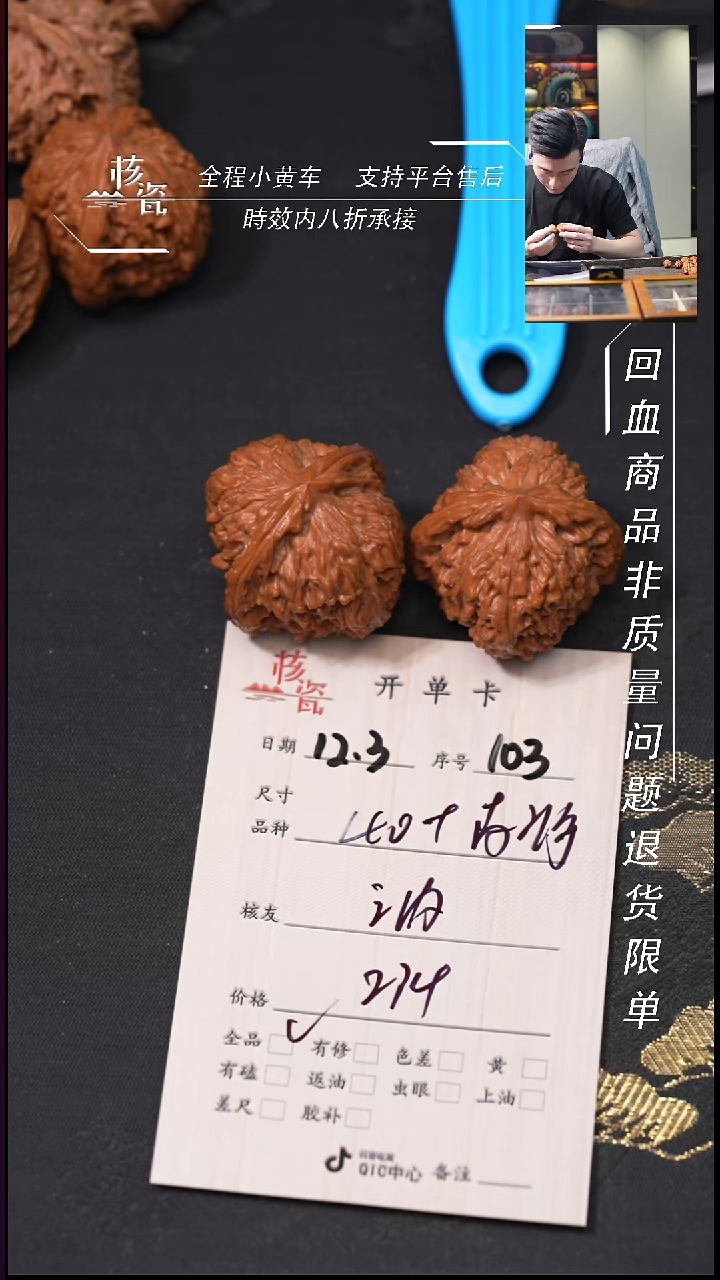 核瓷
全程小黄车 支持平台售后
時效内八折承接
回血商品非质量问题退货限单
核瓷
开单卡
日期 12.3 序号 103
尺寸
品种
核友
价格 274
全品 有修 色差 黄
有磕 返油 虫眼 上油
差尺 胶补
抖音电商
QIC中心 备注